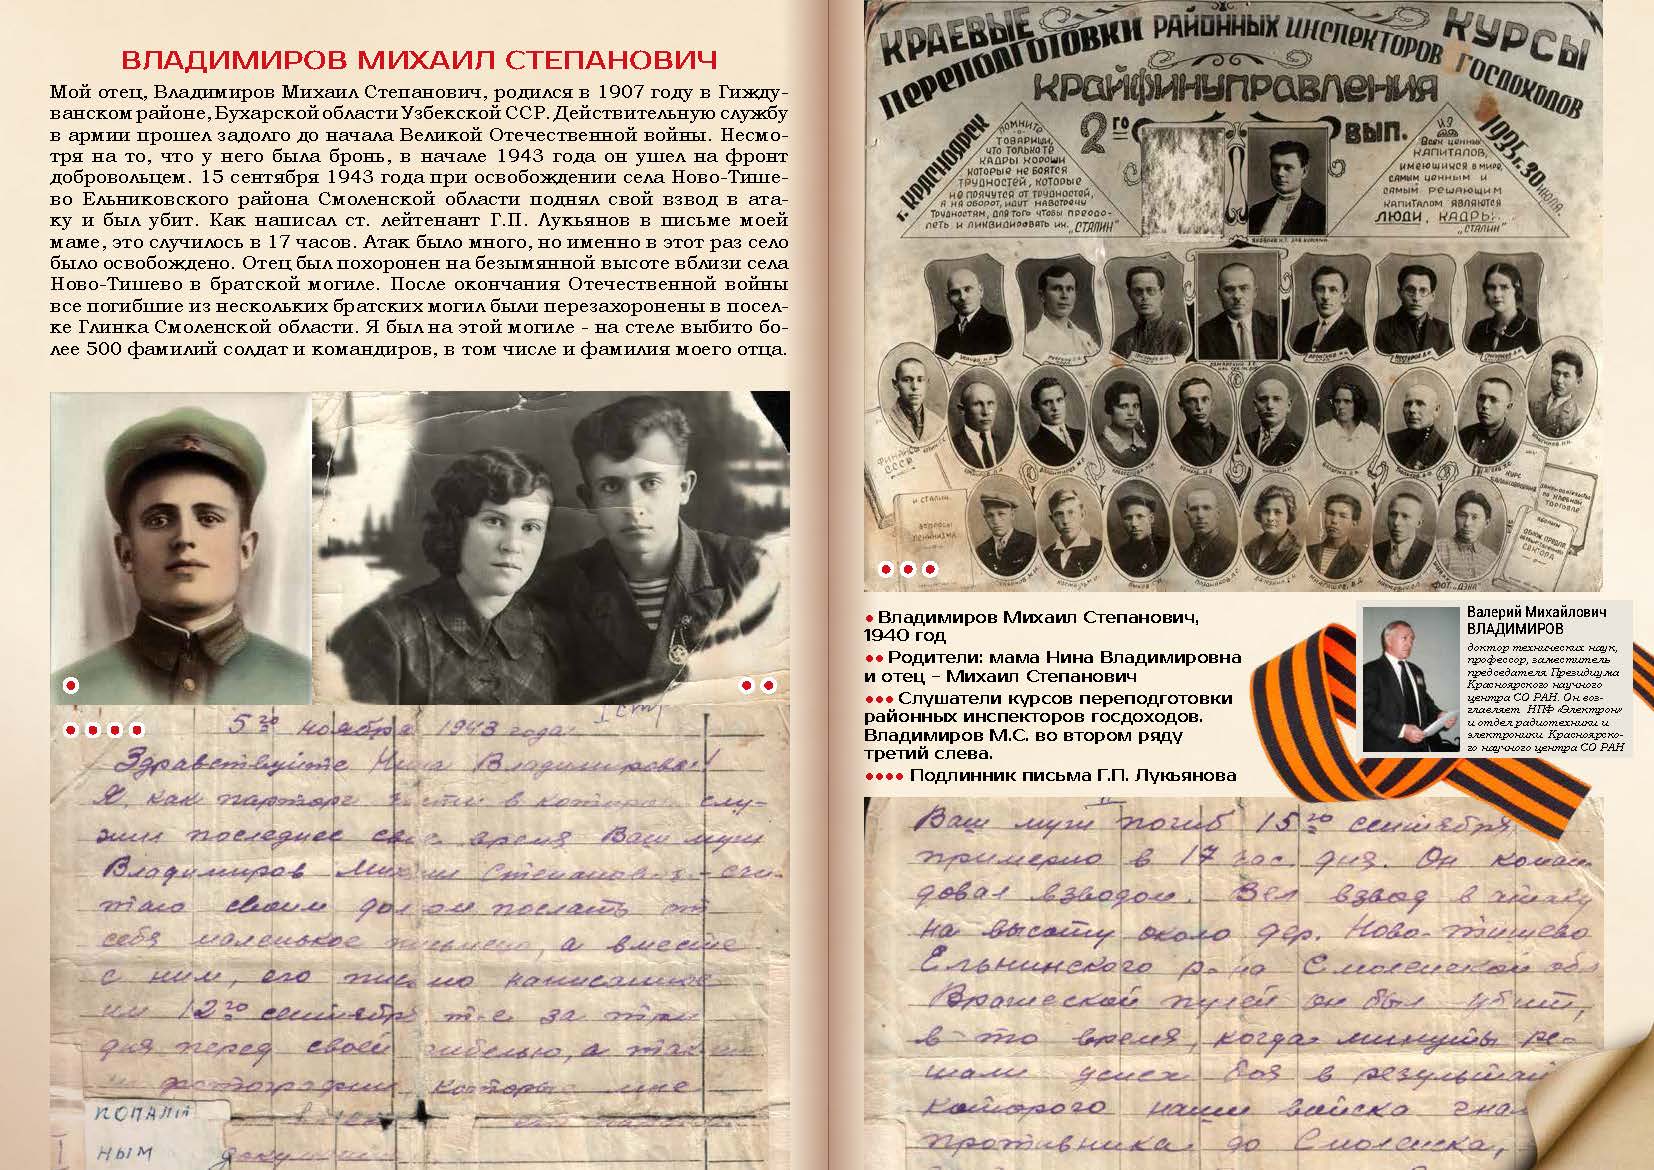 ВЛАДИМИРОВ МИХАИЛ СТЕПАНОВИЧ
Мой отец, Владимиров Михаил Степанович, родился в 1907 году в Гижду-
ванском районе, Бухарской области Узбекской ССР. Действительную службу
в армии прошел задолго до начала Великой Отечественной войны. Несмо-
тря на то, что у него была бронь, в начале 1943 года он ушел на фронт
добровольцем. 15 сентября 1943 года при освобождении села Ново-Тише-
во Ельниковского района Смоленской области поднял свой взвод в ата-
ку и был убит. Как написал ст. лейтенант Г.П. Лукьянов в письме моей
маме, это случилось в 17 часов. Атак было много, но именно в этот раз село
было освобождено. Отец был похоронен на безымянной высоте вблизи села
Ново-Тишево в братской могиле. После окончания Отечественной войны
все погибшие из нескольких братских могил были перезахоронены в посел-
ке Глинка Смоленской области. Я был на этой могиле - на стеле выбито бо-
лее 500 фамилий солдат и командиров, в том числе и фамилия моего отца.
5го ноября 1943 года
Здравствуйте Нина Владимировна!
Я, как парторг части в котором слу-
жил последнее свое время Ваш муж
Владимиров Михаил Степанович - счи-
таю своим долгом послать от
себя маленькое письмецо, а вместе
с ним, его письмо написанное
им 12го сентября т.е. за три
дня перед своей гибелью, а также
фотографии, которые мне
КОПАЛИ
НЫМ
КРАЕВЫЕ КУРСЫ
ПЕРЕПОДГОТОВКИ РАЙОННЫХ ИНСПЕКТОРОВ ГОСДОХОДОВ
КРАЙФИНУПРАВЛЕНИЯ
г. КРАСНОЯРСК
2го ВЫП.
1935г. 30 июля.
ПОМНИТЕ
ТОВАРИЩИ,
ЧТО ТОЛЬКО ТЕ
КАДРЫ ХОРОШИ
КОТОРЫЕ НЕ БОЯТСЯ
ТРУДНОСТЕЙ, КОТОРЫЕ
НЕ ПРЯЧУТСЯ ОТ ТРУДНОСТЕЙ,
А НАОБОРОТ, ИДУТ НАВСТРЕЧУ
ТРУДНОСТЯМ, ДЛЯ ТОГО ЧТОБЫ ПРЕОДО-
ЛЕТЬ И ЛИКВИДИРОВАТЬ ИХ. „СТАЛИН"
ИЗ
ВСЕХ ЦЕННЫХ
КАПИТАЛОВ,
ИМЕЮЩИХСЯ В МИРЕ,
САМЫМ ЦЕННЫМ И
САМЫМ РЕШАЮЩИМ
КАПИТАЛОМ ЯВЛЯЮТСЯ
ЛЮДИ, КАДРЫ.
„СТАЛИН"
ФИНАНСЫ
СССР
И. СТАЛИН.
ВОПРОСЫ
ЛЕНИНИЗМА
КУРС
● Владимиров Михаил Степанович,
1940 год
●● Родители: мама Нина Владимировна
и отец – Михаил Степанович
●●● Слушатели курсов переподготовки
районных инспекторов госдоходов.
Владимиров М.С. во втором ряду
третий слева.
●●●● Подлинник письма Г.П. Лукьянова
Валерий Михайлович
ВЛАДИМИРОВ
доктор технических наук,
профессор, заместитель
председателя Президиума
Красноярского научного
центра СО РАН. Он воз-
главляет НПФ «Электрон»
и отдел радиотехники и
электроники Красноярско-
го научного центра СО РАН
Ваш муж погиб 15го сентября
примерно в 17 час. дня. Он коман-
довал взводом. Вел взвод в атаку
на высоту около дер. Ново-Тишево
Ельнинского р-на Смоленской обл
Вражеской пулей он был убит,
в то время, когда минуты ре-
шали успех боя в результате
которого наши войска гнали
противника до Смоленска,